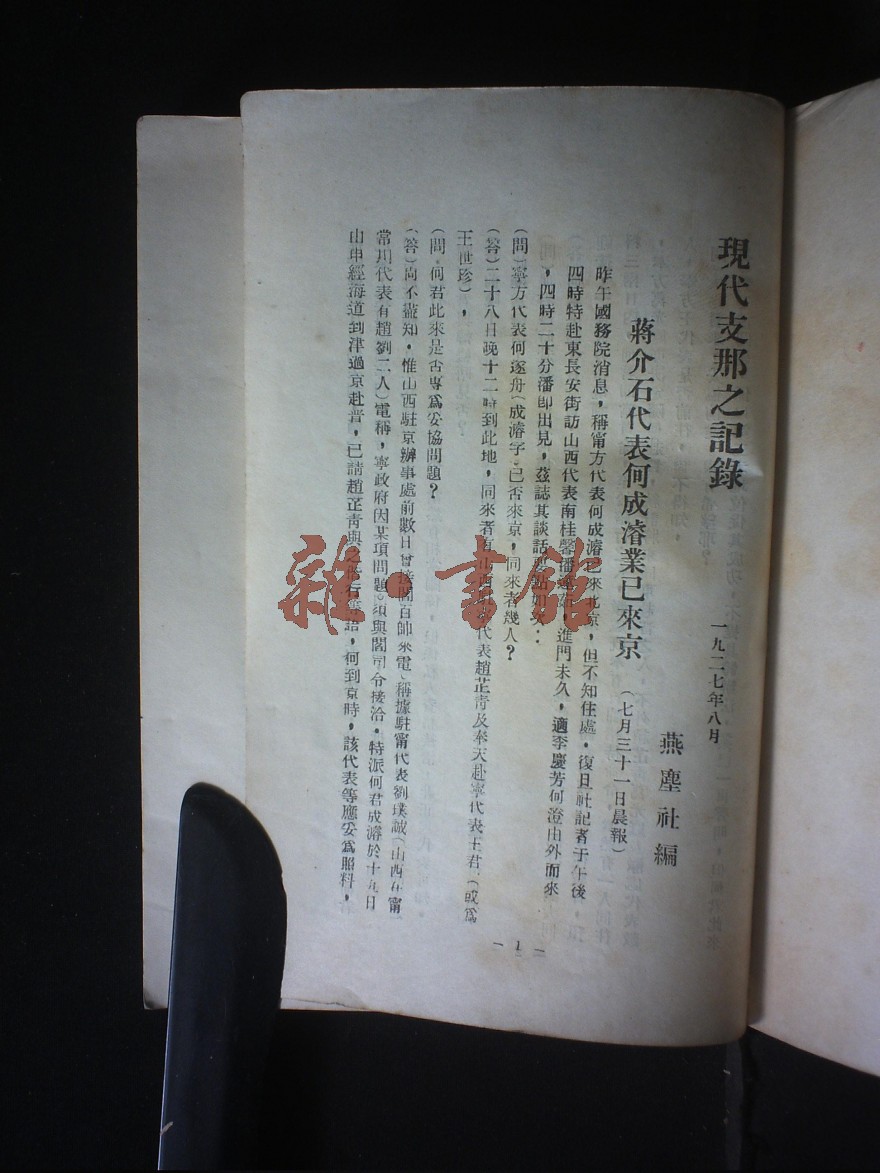 現代支那之記錄
一九二七年八月
燕塵社編
蔣介石代表何成濬業已來京
(七月三十一日晨報)
昨午國務院消息，稱甯方代表何成濬已來北京，但不知住處・復旦社記者于午後
四時特赴東長安街訪山西代表南桂馨潘蓮茹，進門未久，適李慶芳何澄由外而來
，四時二十分潘即出見，茲誌其談話要點如次：
(問)寧方代表何逐舟(成濬字)已否來京，同來者幾人？
(答)二十八日晚十二時到此地，同來者有山西駐寧代表趙芷青及奉天赴寧代表王君，(或為
王世珍)，
(問)何君此來是否專為妥協問題？
(答)尚不盡知・惟山西駐京辦事處前數日曾接閻百帥來電，稱據駐甯代表劉璞誠(山西在甯
常川代表有趙劉二人)電稱，寧政府因某項問題。須與閻司令接洽・特派何君成濬於十九日
由申經海道到津過京赴晋，已請趙芷青與之偕行等語，何到京時，該代表等應妥為照料，
— 1 —
雜・書館